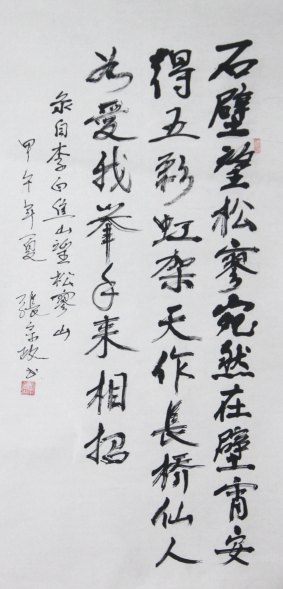 石壁望松寥宛然在壁霄安
得五彩虹架天作長橋仙人
如愛我举手来相招
录自李白焦山望松寥山
甲午年夏 張 书